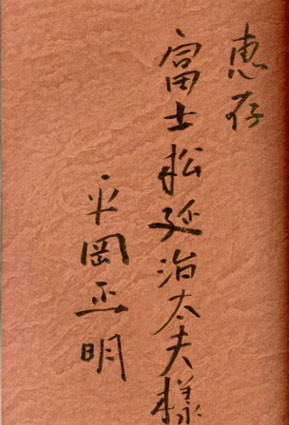 恵存
富士松延治太夫様
平岡正明